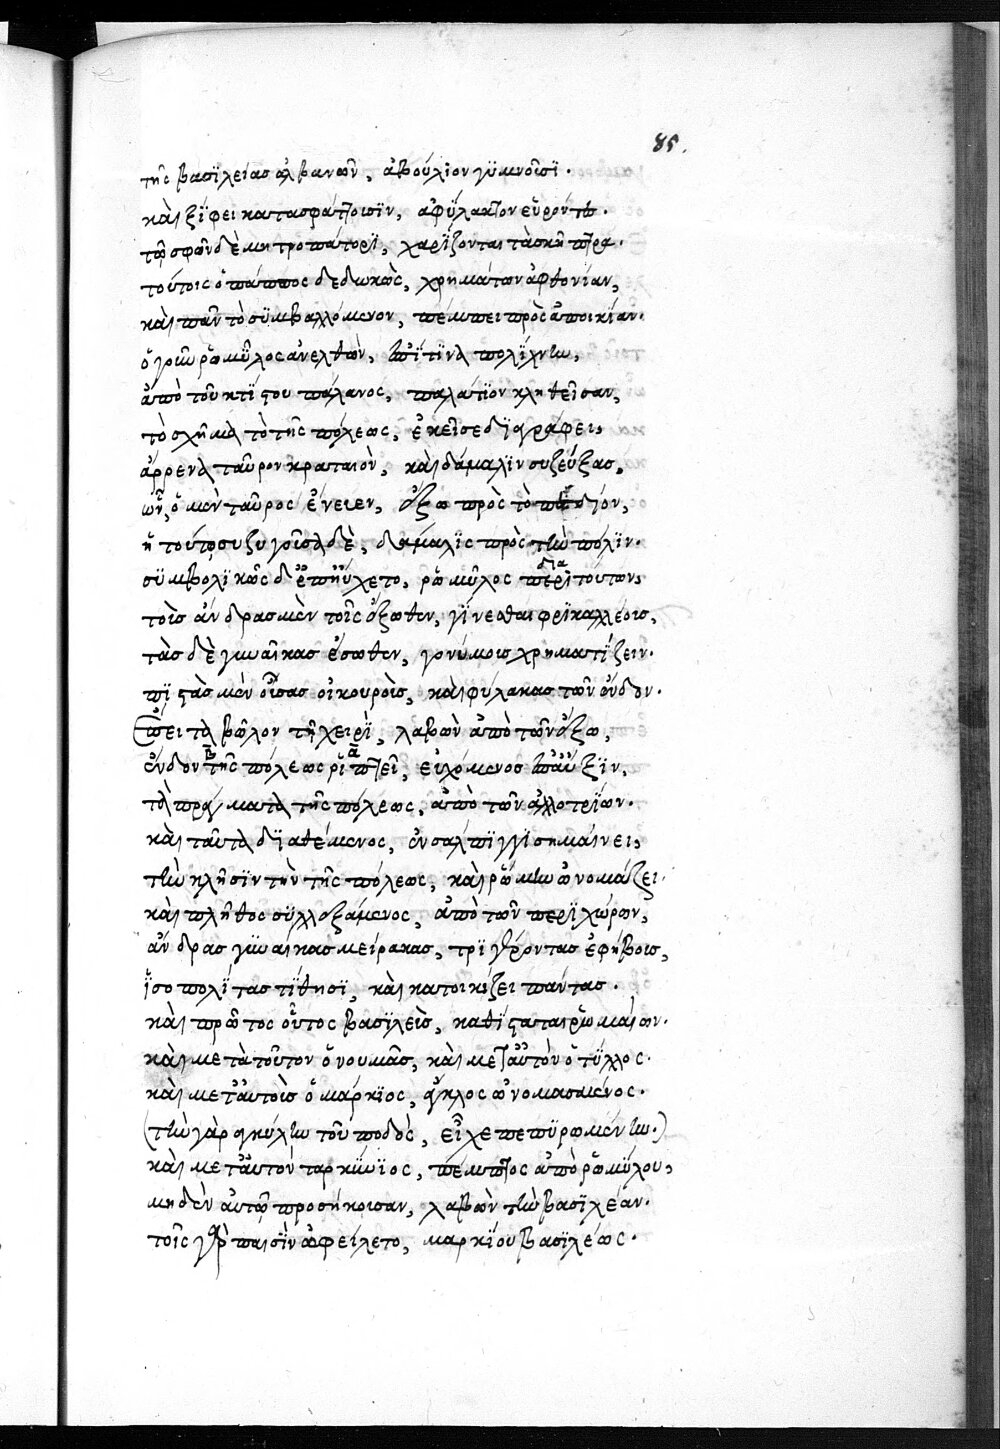 85.
τῆς βασϊλείας ἀλβανῶν, ἀβούλϊον γϋμνοῦσϊ.
καὶ ξίφει κατασφάττουσϊν, ἀφϋλακτον εὑρόντες.
τῷ σφῶν δὲ μητροπάτορϊ, χαρϊζονται τὰ σκῆπτρα.
τούτοις ὁ πάππος δεδωκὼς, χρημάτων ἀφθονίαν,
καὶ πᾶν τὸ σϋμβαλλόμενον, πέμπει πρὸς ἀποικίαν.
ὁ γοῦν ῥωμῦλος ἀνελθὼν, ἐπί τϊνα πολϊχνην,
ἀπὸ τοῦ κτϊστου πάλανος, παλάτϊον κληθεῖσαν,
τὸ σχῆμα τὸ τῆς πόλεως, ἐκεῖσε δϊαγράφει,
ἄρρενα ταῦρον κραταιὸν, καὶ δάμαλϊν συζεύξας,
ὧν, ὁ μὲν ταῦρος ἔνευεν, ἔξω πρὸς τὸ πεδϊον,
ἡ τούτῳ συζυγοῦσα δὲ, δάμαλϊς πρὸς τὴν πόλϊν.
σϋμβολϊκῶς δ' ἐπηύχετο, ῥωμῦλος περὶ δια τούτων,
τοῖς ἀνδράσι μὲν τοῖς ἔξωθεν, γίνεσθαι φρϊκαλλέοις,
τὰς δὲ γυναῖκας ἔσωθεν, γονίμοις χρηματίζειν.
πϊστὰς μὲν οὔσας οἰκουροῖς, καὶ φύλακας τῶν ἔνδον.
Ἔπειτα βῶλον τῇ χειρὶ, λαβὼν ἀπὸ τῶν ἔξω,
ἔνδον τῆς πόλεως ῥϊπτεῖ, εὐχόμενος ἐπαύξϊν,
τὰ πράγματα τῆς πόλεως, ἀπὸ τῶν ἀλλοτρϊων.
καὶ ταῦτα δϊαθέμενος, ἐν σάλπϊγγϊ σημαίνει,
τὴν κλῆσϊν τὴν τῆς πόλεως, καὶ ῥώμην ὠνομάζει.
καὶ πλῆθος σϋλλεξάμενος, ἀπὸ τῶν περϊχώρων,
ἄνδρας γϋναικας μείρακας, τρϊγέροντας ἐφήβοις,
ἰσοπολίτας τϊθησϊ, καὶ κατοικίζει πάντας.
καὶ πρῶτος οὗτος βασϊλεὺς, καθίσταται ῥωμαίων.
καὶ μετὰ τοῦτον ὁ νουμᾶς, καὶ μετ' αὐτὸν ὁ τύλλος.
καὶ μετ' αὐτοὺς ὁ μάρκϊος, ἄγκλος ὠνομασμένος.
(τὴν γὰρ ἀγκύλην τοῦ ποδὸς, εἶχε πεπϋρωμένην.)
καὶ μετ' αὐτὸν ταρκΰνϊος, πέμπτος ἀπὸ ῥωμύλου,
μηδὲν αὐτῷ προσήκουσαν, λαβὼν τὴν βασϊλείαν.
τοῖς γὰρ παισὶν ὠφείλετο, μαρκϊου βασϊλέως.